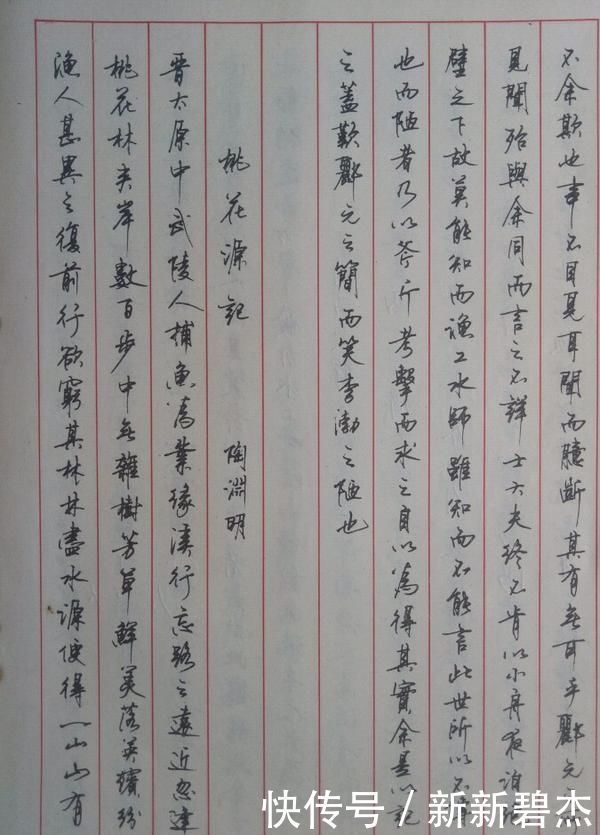 不余欺也事不目見耳聞而臆斷其有無可乎酈元之
見聞殆與余同而言之不詳士大夫終不肯以小舟夜泊絕
壁之下故莫能知而漁工水師雖知而不能言此世所以不傳
也而陋者乃以斧斤考擊而求之自以為得其實余是以記
之蓋歎酈元之簡而笑李渤之陋也
桃花源記 陶淵明
晋太原中武陵人捕魚為業緣溪行忘路之遠近忽逢
桃花林夹岸數百步中無雜樹芳草鮮美落英繽紛
漁人甚異之復前行欲窮其林林盡水源便得一山山有
快传号 / 新新碧杰